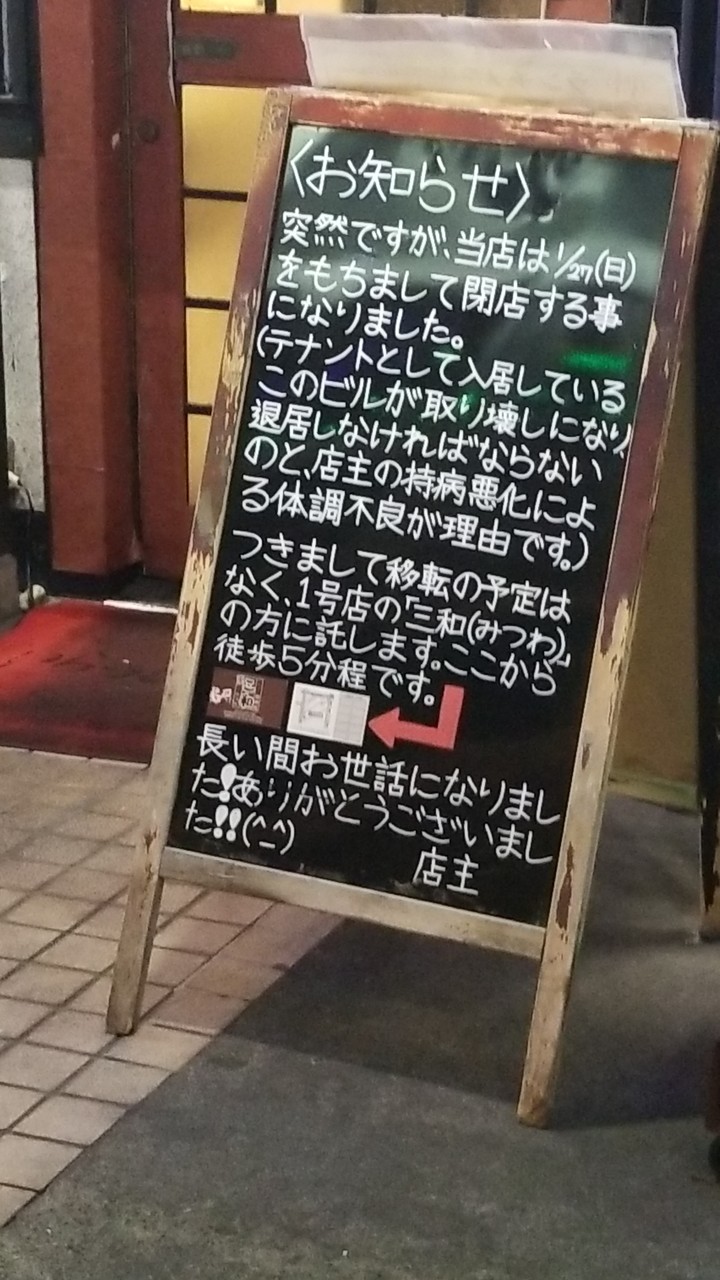 〈お知らせ〉
突然ですが、当店は1/27(日)
をもちまして閉店する事
になりました。
(テナントとして入居している
このビルが取り壊しになり、
退居しなければならない
のと、店主の持病悪化によ
る体調不良が理由です。)
つきまして移転の予定は
なく、1号店の「三和(みつわ)」
の方に託します。ここから
徒歩5分程です。
長い間お世話になりまし
た!ありがとうございまし
た!!(^_^)
店主